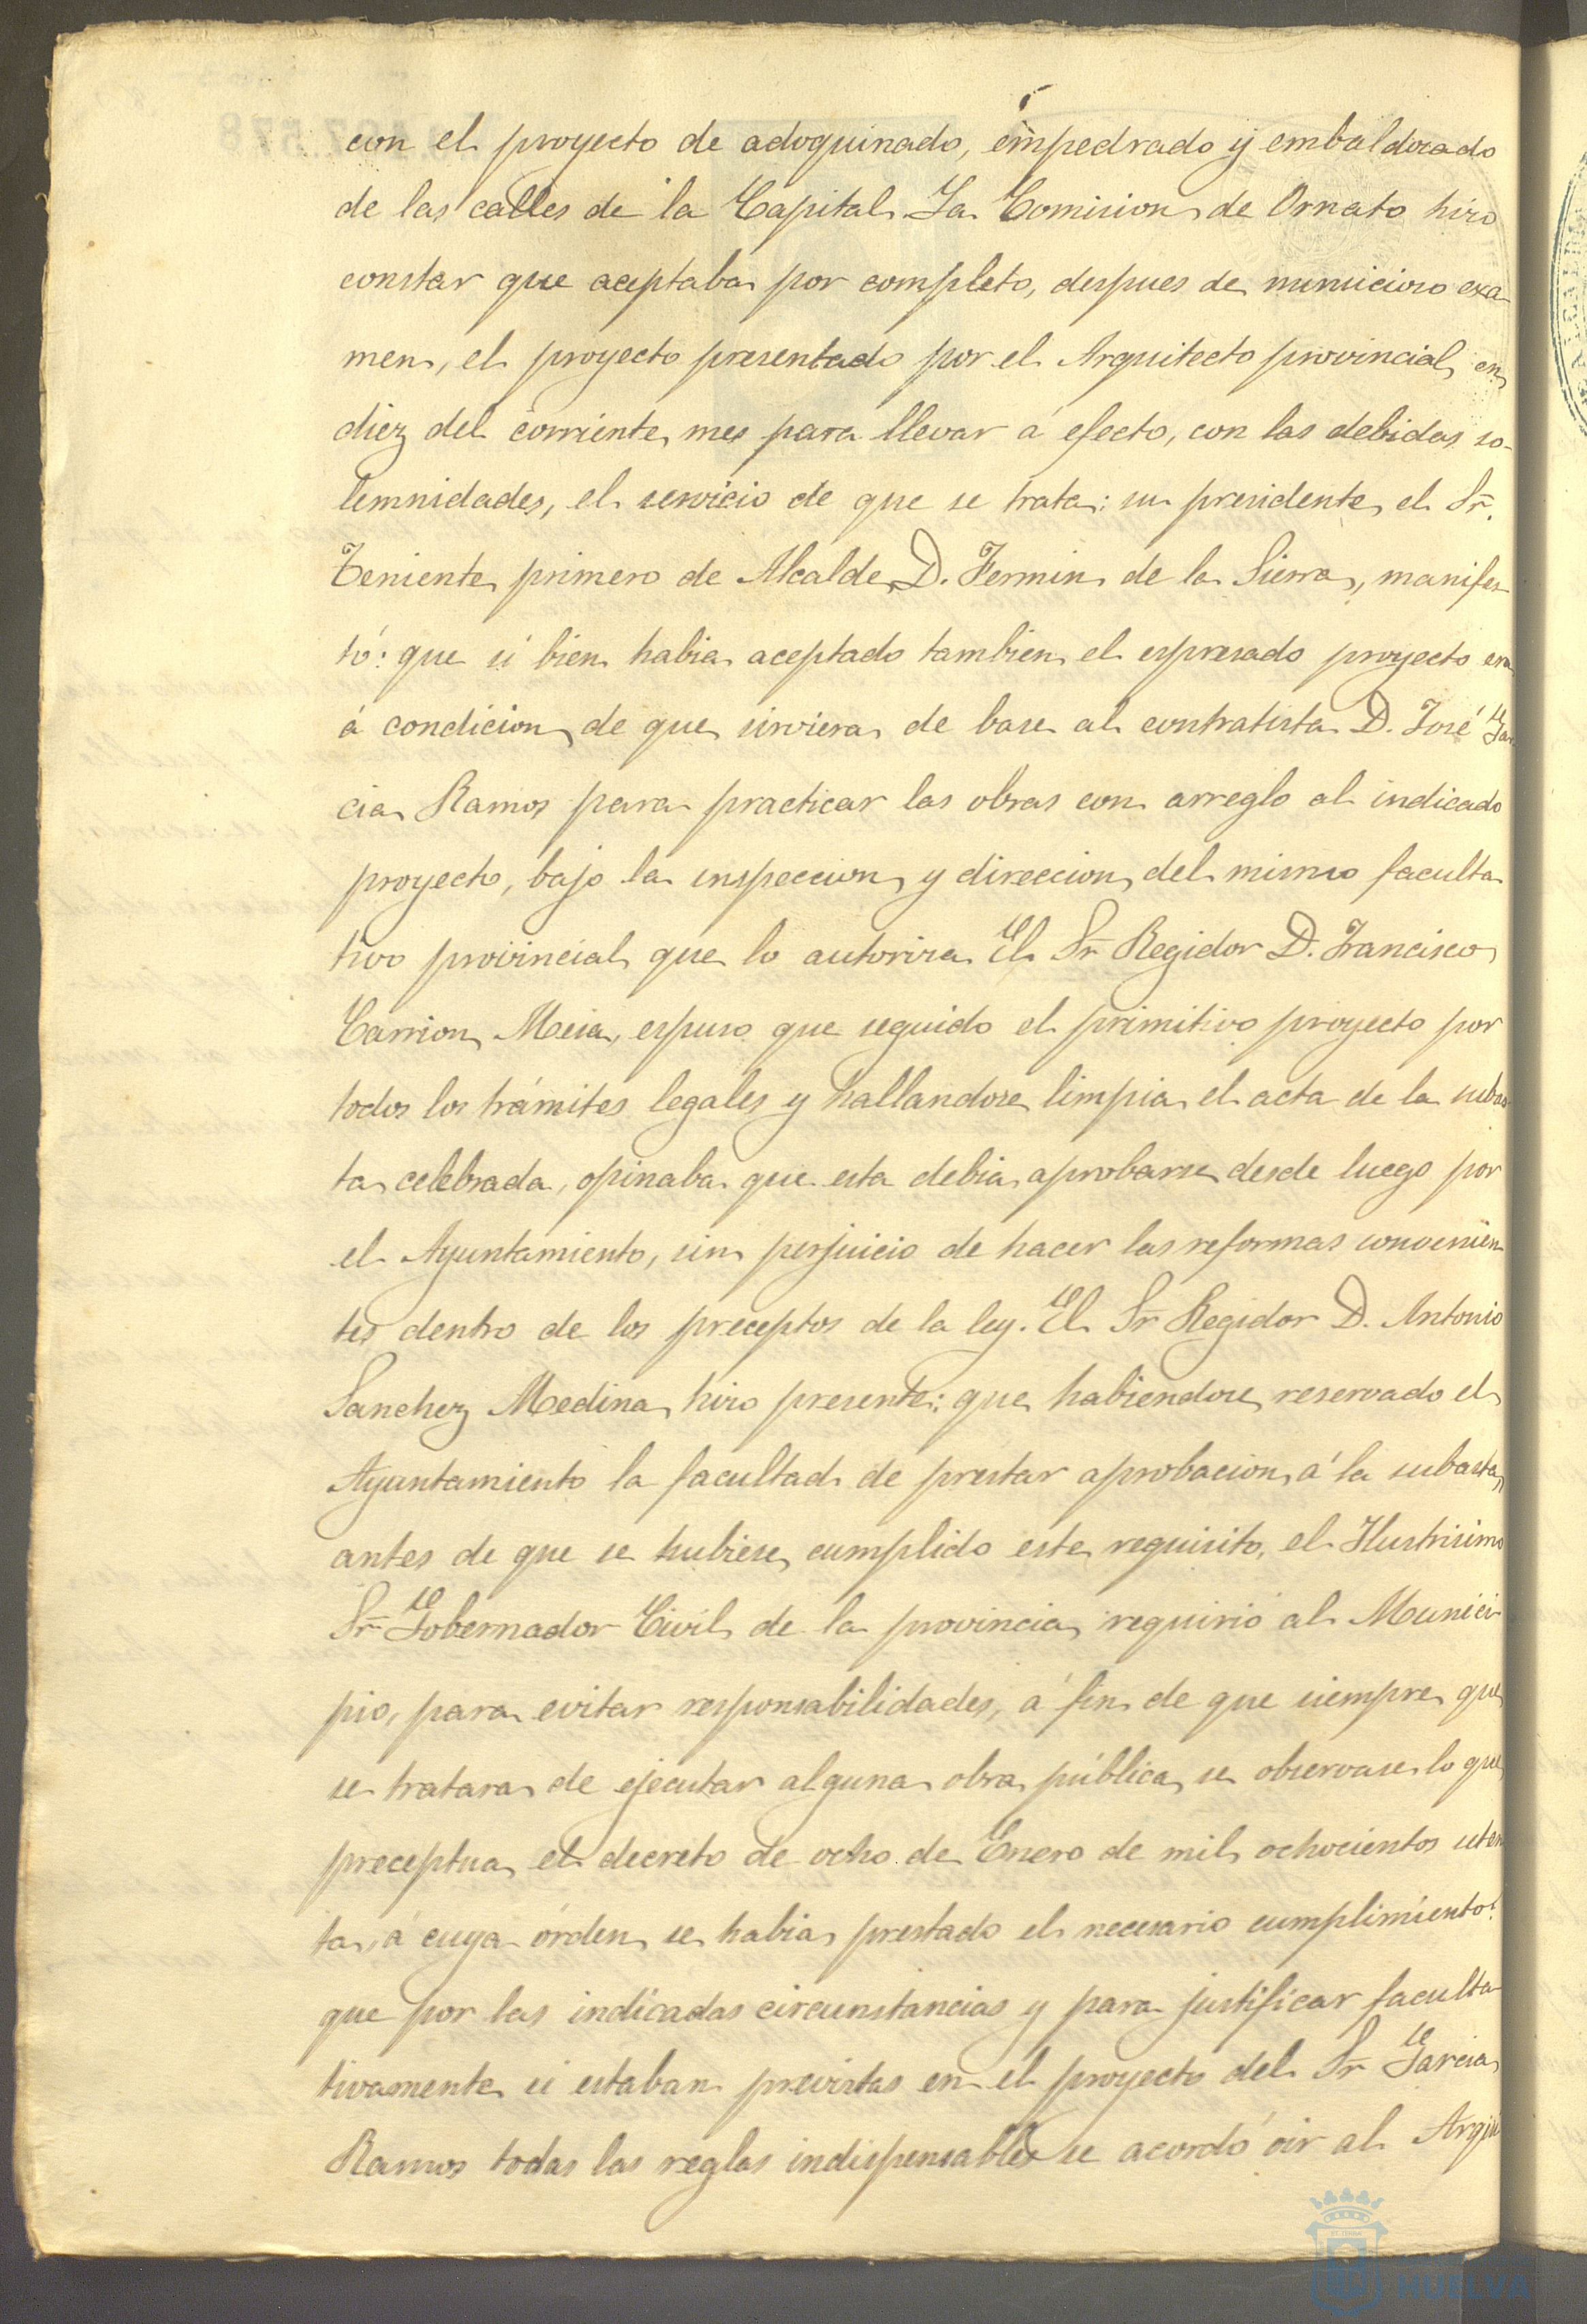 con el proyecto de adoquinado, empedrado y embaldosado
de las calles de la Capital. La Comision de Ornato hizo
constar que aceptaba por completo, despues de minucioso exa-
men, el proyecto presentado por el Arquitecto provincial en
diez del corriente mes para llevar á efecto, con las debidas so-
lemnidades, el servicio de que se trata: su presidente el Sr.
Teniente primero de Alcalde D. Fermin de la Sierra, manifes-
tó: que si bien habia aceptado tambien el espresado proyecto era
á condicion de que sirviera de base al contratista D. José Gar
cia Ramos para practicar las obras con arreglo al indicado
proyecto, bajo la inspeccion y direccion del mismo faculta
tivo provincial que lo autoriza. El Sr. Regidor D. Francisco
Carrion Mesa, espuso que seguido el primitivo proyecto por
todos los trámites legales y hallandose limpia el acta de la subas
ta celebrada, opinaba que esta debia aprobarse desde luego por
el Ayuntamiento, sin perjuicio de hacer las reformas convenien
tes dentro de los preceptos de la ley. El Sr. Regidor D. Antonio
Sanchez Medina hizo presente: que habiendose reservado el
Ayuntamiento la facultad de prestar aprobacion á la subasta,
antes de que se hubiese cumplido este requisito, el Ilustrisimo
Sr. Gobernador Civil de la provincia requirió al Munici
pio, para evitar responsabilidades, á fin de que siempre que
se tratara de ejecutar alguna obra pública se observase lo que
preceptua el decreto de ocho de Enero de mil ochocientos seten
ta, á cuya órden se habia prestado el necesario cumplimiento:
que por las indicadas circunstancias y para justificar faculta
tivamente si estaban previstas en el proyecto del Sr. Garcia
Ramos todas las reglas indispensables se acordó oir al Arqui
HUELVA